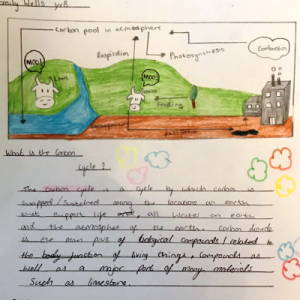 Emily Wells yr8
Carbon pool in atmosphere
Respiration
Photosynthesis
Combustion
MOO!
MOO!
Feeding
What is the Carbon
Cycle?
The carbon cycle is a cycle by which carbon is
swapped / switched along the locations on earth
that support life all located on earth
and the atmosphere of the earth. Carbon dioxide
is the main part of biological compounds / related to
the body function of living things, compounds as
well as a major part of many materials
Such as limestone.